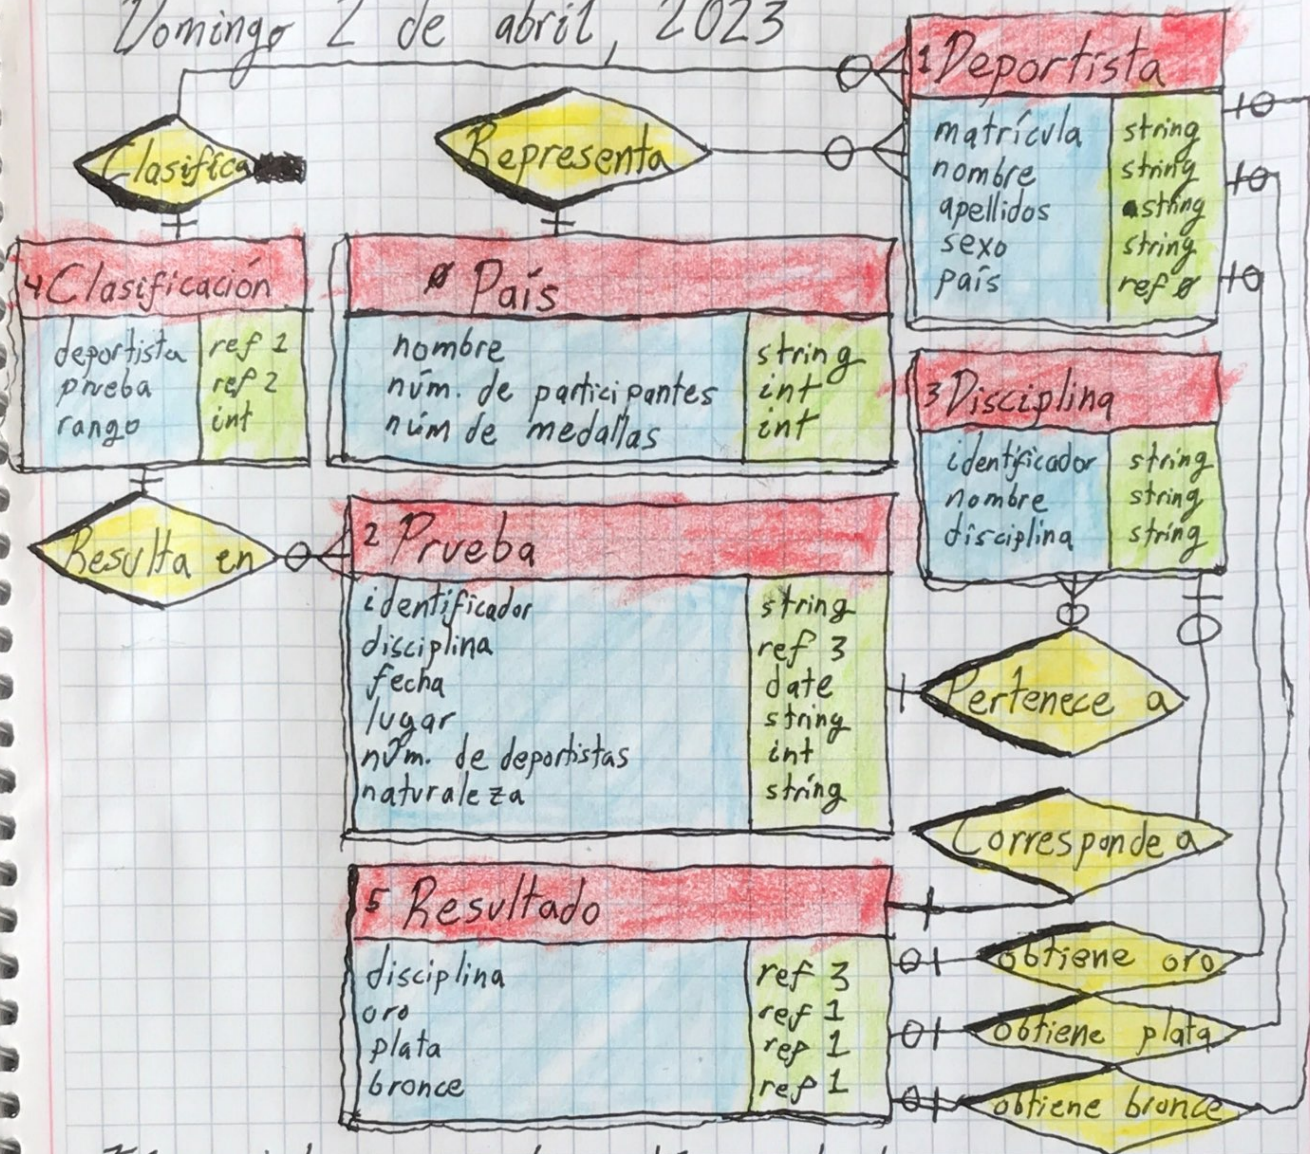 Domingo 2 de abril, 2023
Clasifica
Representa
1 Deportista
matrícula string
nombre string
apellidos string
sexo string
país ref 0
4 Clasificación
deportista ref 1
prueba ref 2
rango int
0 País
nombre string
núm. de participantes int
núm de medallas int
3 Disciplina
identificador string
nombre string
disciplina string
Resulta en
2 Prueba
identificador string
disciplina ref 3
fecha date
lugar string
núm. de deportistas int
naturaleza string
Pertenece a
Corresponde a
5 Resultado
disciplina ref 3
oro ref 1
plata ref 1
bronce ref 1
obtiene oro
obtiene plata
obtiene bronce